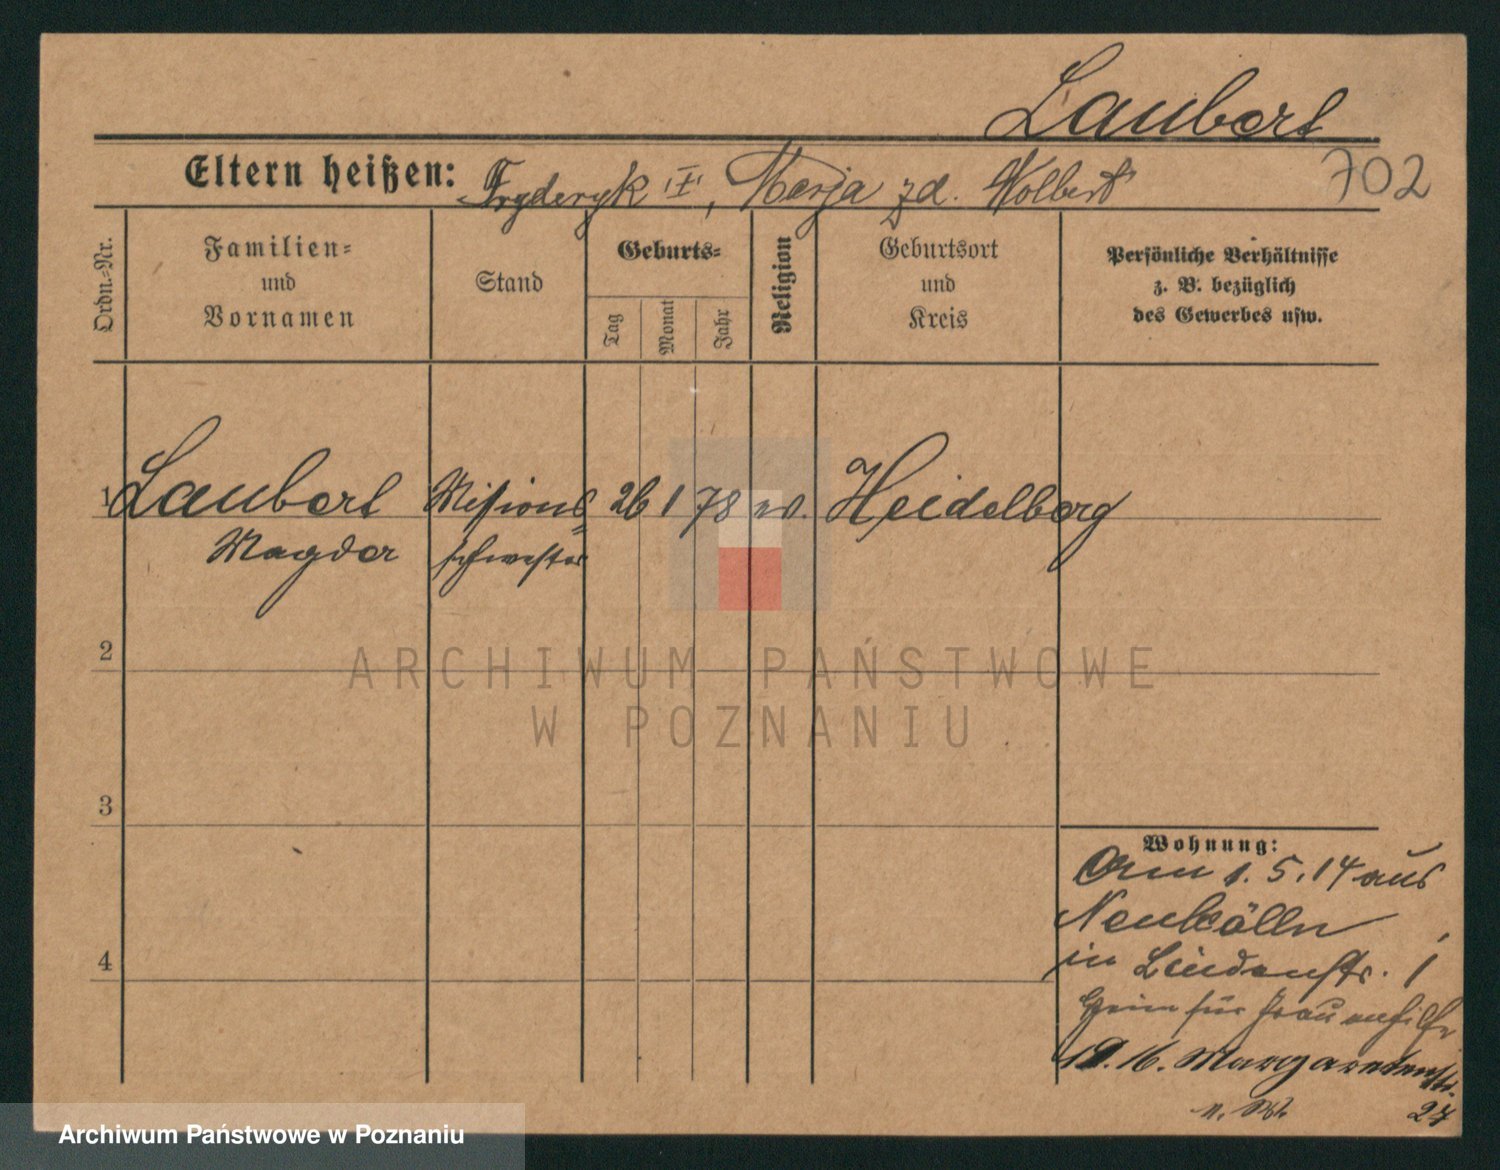 Laubert
Eltern heißen: Fryderyk "I", Marja zd. Wolbert
702
Ordn.-Nr.
Familien-
und
Vornamen
Stand
Geburts-
Tag
Monat
Jahr
Religion
Geburtsort
und
Kreis
Persönliche Verhältnisse
z. B. bezüglich
des Gewerbes usw.
1 Laubert Missions 26 1 78 ev. Heidelberg
Magda schwester
2
ARCHIWUM PAŃSTWOWE
W POZNANIU
3
Wohnung:
1.5.14 aus
Neukölln
in Lindenstr. 1
Heim für Frauenhilfe
16. Margaretenstr.
27
4
Archiwum Państwowe w Poznaniu